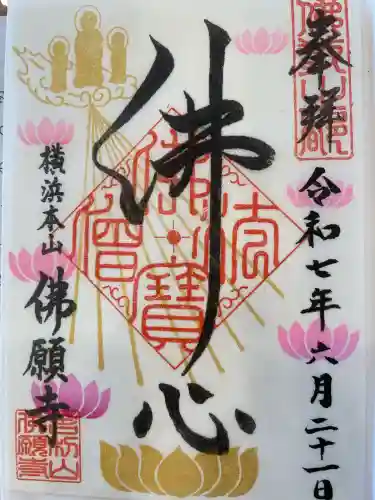 奉拝
令和七年六月二十一日
佛心
佛法僧寶
横浜本山
佛願寺